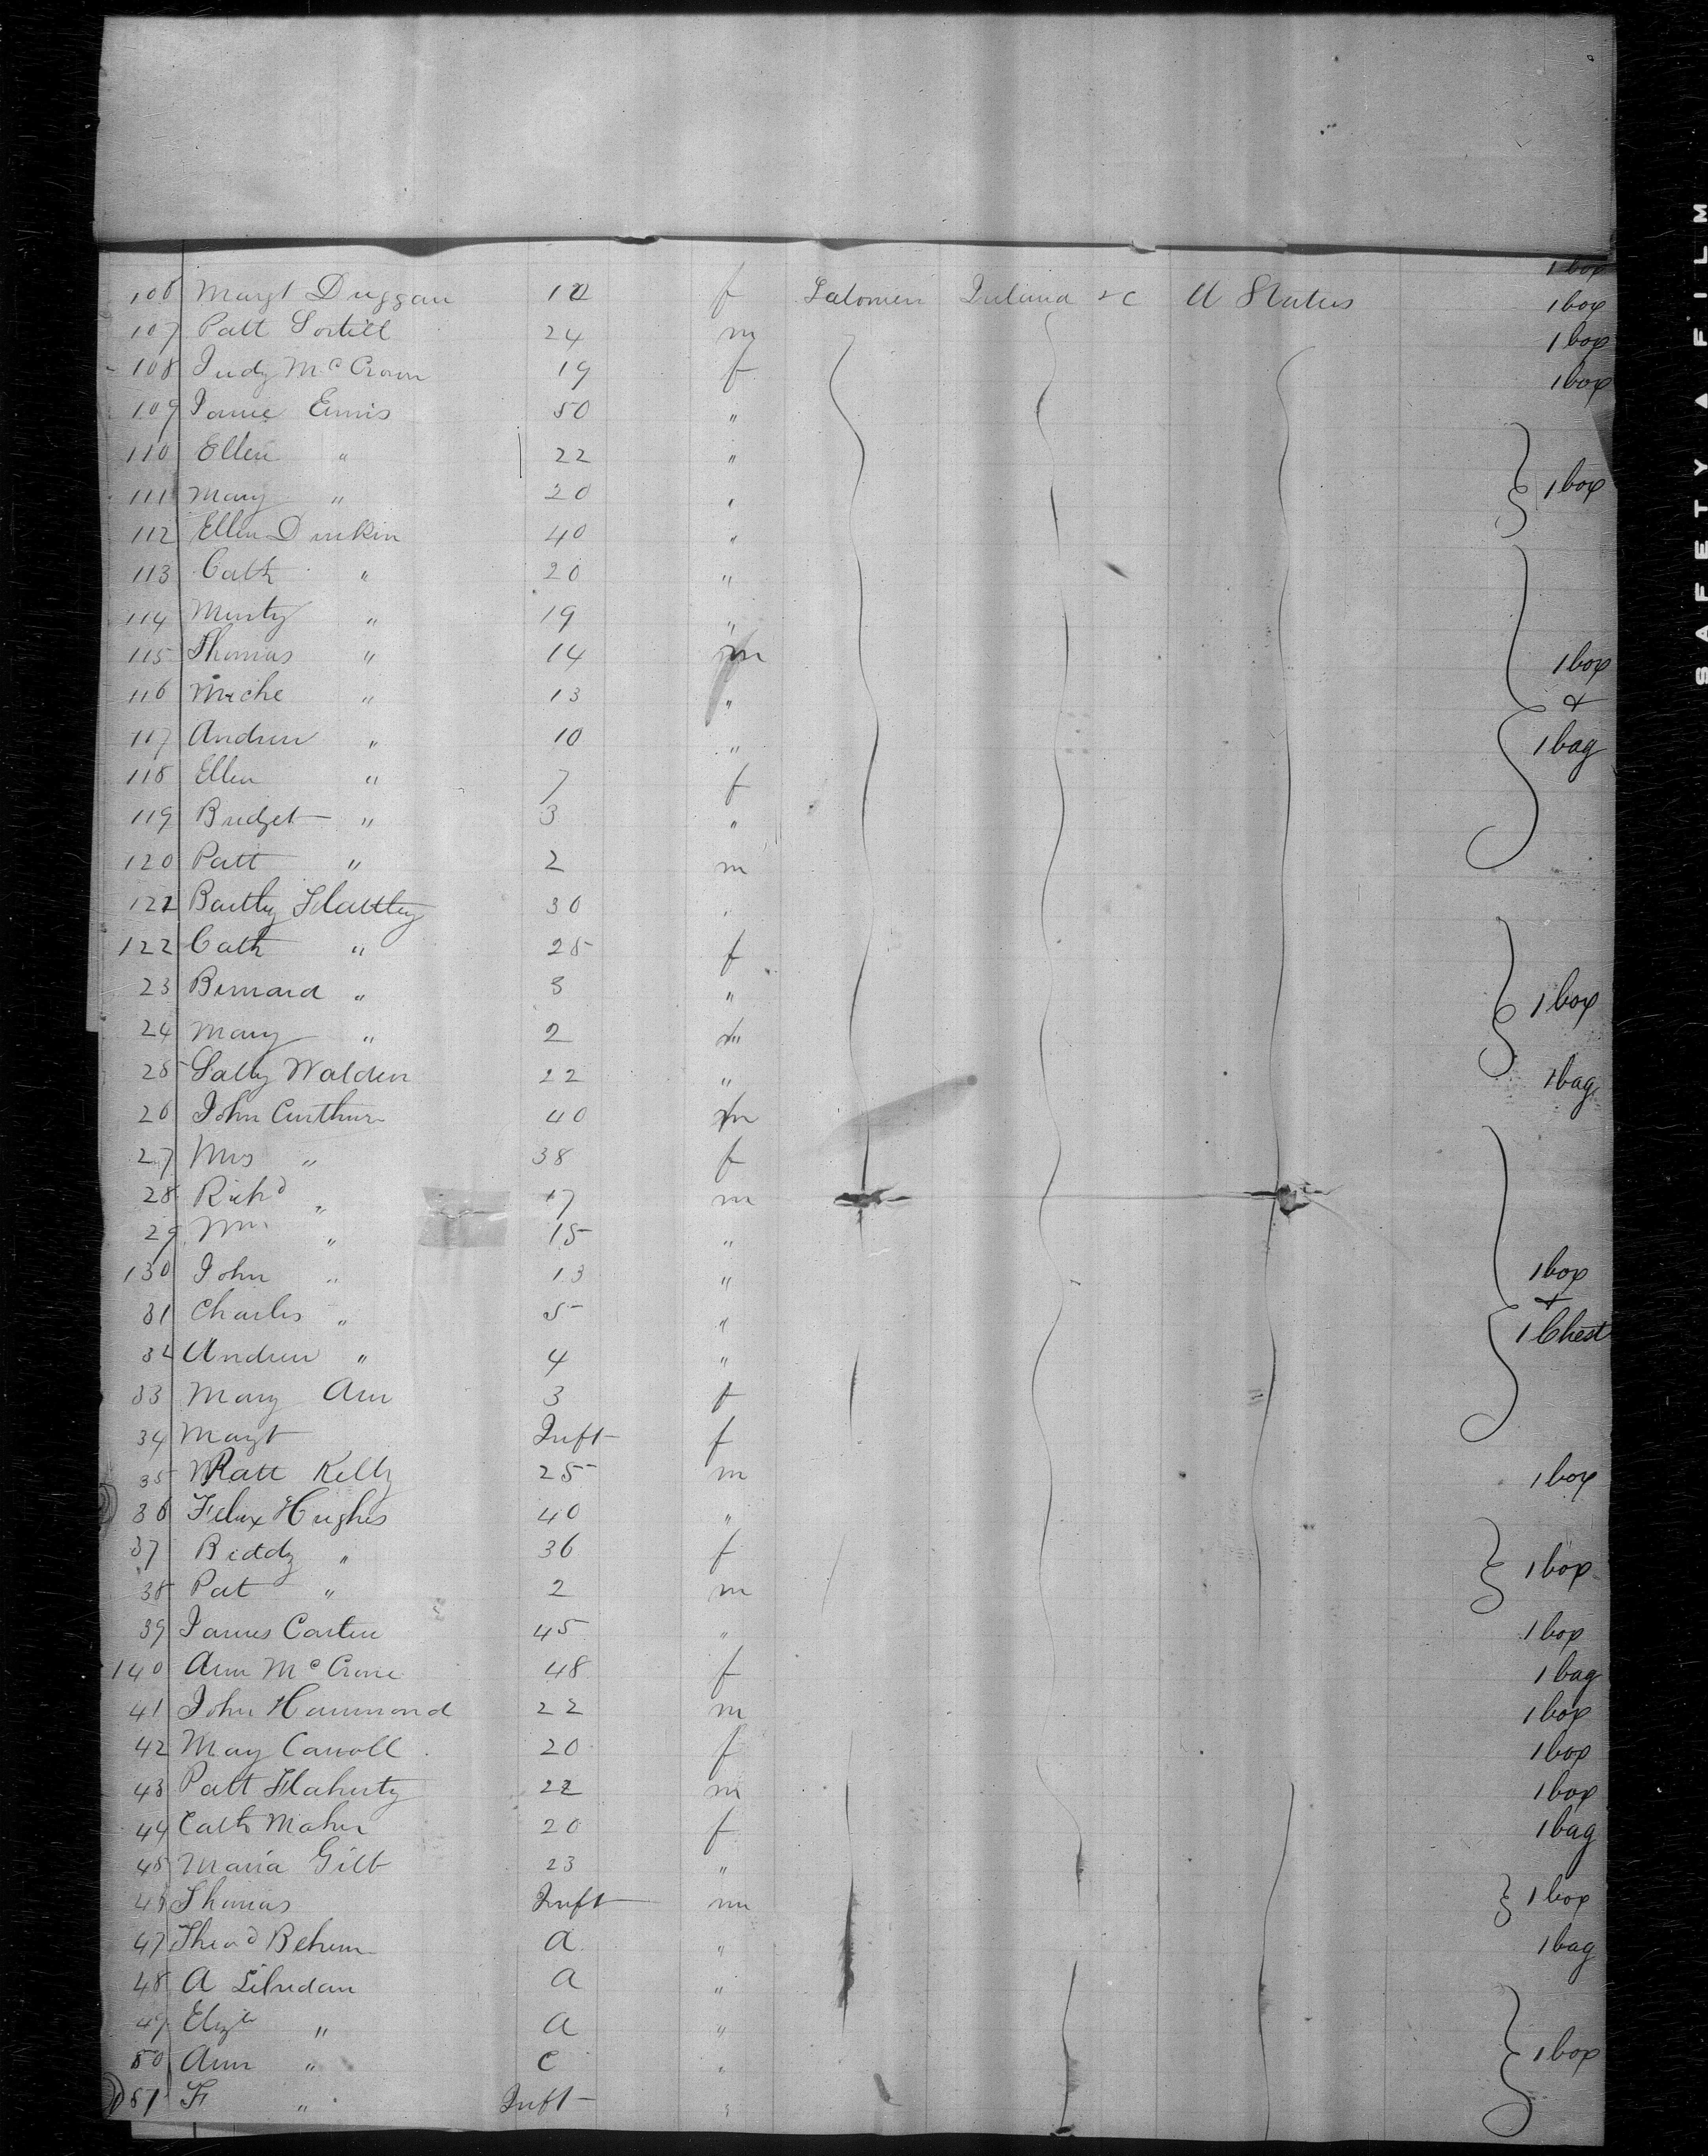 1 box
106 Margt Duggan 12 f Ireland &c U States 1 box
107 Patt 24 m 1 box
108 Judy McCrann 19 f 1 box
109 Jane Ennis 50 "
110 Ellen " 22 "
111 Mary " 20 " 1 box
112 Ellen Dunkin 40 "
113 Cath " 20 "
114 " 19 "
115 Thomas " 14 m 1 box
116 Miche " 13 " &
117 Andrew " 10 " 1 bag
118 Ellen " 7 f
119 Bridget " 3 "
120 Patt " 2 m
121 Bartley Flattley 30 "
122 Cath " 25 f
23 Bernard " 3 " 1 box
24 Mary " 2 "
25 Sally Walden 22 " 1 bag
26 John 40 m
27 Mrs " 38 f
28 Richd " 17 m
29 Wm " 15 "
130 John " 13 " 1 box
31 Charles " 5 " &
32 Andrew " 4 " 1 Chest
33 Mary Ann 3 f
34 Margt Inft f
35 Patt Kelly 25 m 1 box
36 Felix Hughes 40 "
37 Biddy " 36 f 1 box
38 Pat " 2 m
39 James Carten 45 " 1 box
140 Ann McCrone 48 f 1 bag
41 John Hammond 22 m 1 box
42 May Carroll 20 f 1 box
43 Patt Flaherty 22 m 1 box
44 Cath Maher 20 f 1 bag
45 Maria Gilt 23 "
46 Thomas Inft m 1 box
47 a " 1 bag
48 A a "
49 Eliza " a "
50 Ann " C " 1 box
151 F " Inft "
SAFETY A FILM